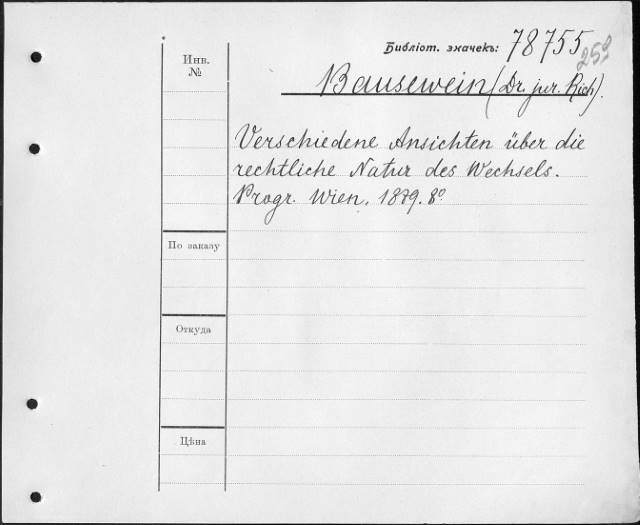 Библіот. значекъ: 78755
Инв.
№
Bausewein (Dr. jur. Rich).
Verschiedene Ansichten über die
rechtliche Natur des Wechsels.
Progr. Wien. 1879. 8º
По заказу
Откуда
Цѣна